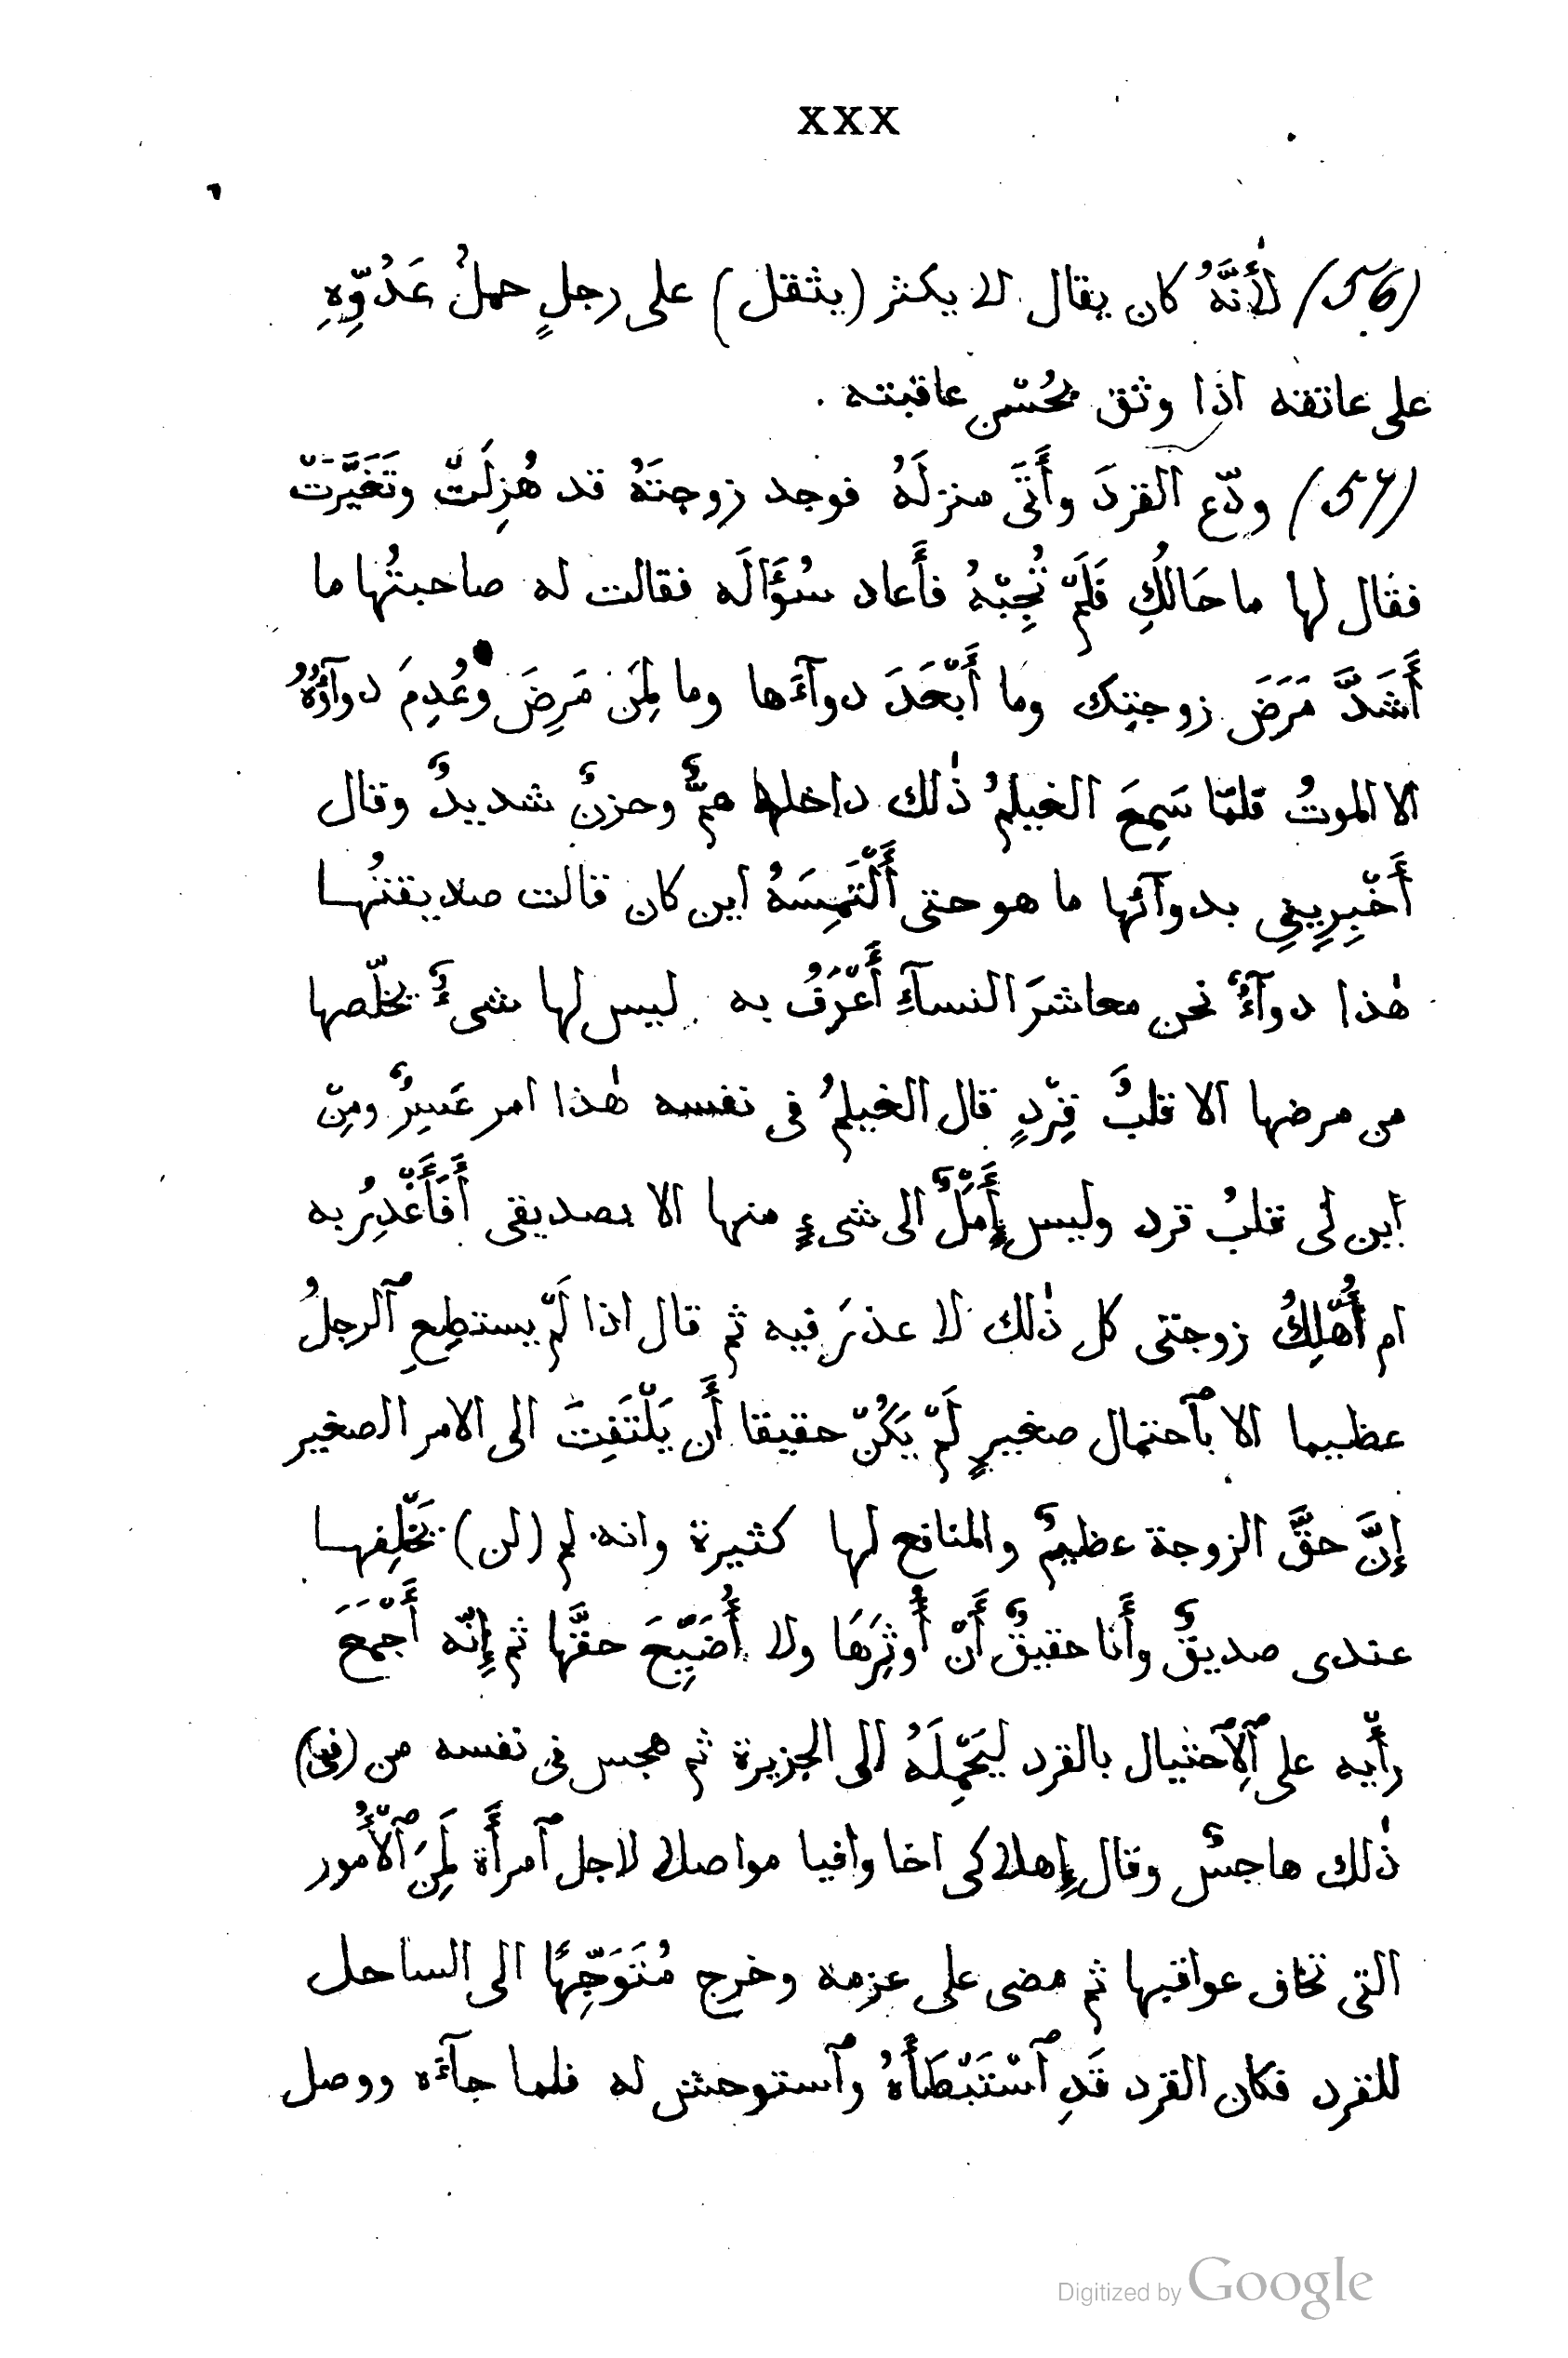 XXX
(56) لأنَّهُ كان يقال لا يكثر (يثقل) على رجلٍ حملُ عَدُوِّهِ
على عاتقه اذا وثق بحُسْن عاقبته .
(57) ودّع القردَ وأَتَى منزلَهُ فوجد زوجتَهُ قد هُزِلَتْ وتَغَيَّرَتْ
فقال لها ما حَالُكِ فَلَمْ تُجِبْهُ فأَعاد سُؤَالَه فقالت له صاحبتُها ما
أَشَدَّ مَرَضَ زوجتِك وَما أَبْعَدَ دوآءَها وما لِمَن مَرِضَ وعُدِمَ دوآؤُهُ
الا الموتُ فلمّا سَمِعَ الغيلمُ ذٰلك داخله همٌّ وحزنٌ شديدٌ وقال
أَخْبِرِينِي بدوآئها ما هو حتى أَلْتَمِسَهُ اين كان قالت صديقتُها
هٰذا دوآءٌ نحن معاشرَ النسآءِ أَعْرَفُ به ليس لها شىءٌ يخلّصها
من مرضها الا قلبُ قِرْدٍ قال الغيلمُ فى نفسه هٰذا امر عَسِيرٌ ومِنْ
أين لى قلبُ قرد وليس أَمَلٌ الى شىءٍ منها الا بصديقى أَفَأَغْدِرُ به
ام أُهْلِكُ زوجتى كل ذٰلك لا عذرَ فيه ثم قال اذا لَمْ يستطِعِ ٱلرجلُ
عظيما الا بٱحتمال صغيرٍ لَمْ يَكُنْ حقيقا أَن يَلْتَفِتَ الى الامر الصغير
إِنَّ حقَّ الزوجة عظيمٌ والمنافع لها كثيرة وانه لم (لن) يخْلِفها
عندى صديقٌ وأَنا حقيقٌ أَنْ أُوثِرَهَا ولا أُضَيِّعَ حقَّها ثم إِنّه أَجْمَعَ
رأْيه على ٱلٱحتيال بالقرد لِيَحْمِلَهُ الى الجزيرة ثم هجس فى نفسه من (فى)
ذٰلك هاجسٌ وقال إِهلاكى اخا وافيا مواصلا لاجل ٱمرأَة لَمِنَ ٱلْأُمور
التى تخاف عواقبها ثم مضى على عزمه وخرج مُتَوَجِّهًا الى الساحل
للقرد فكان القرد قَدِ ٱسْتَبْطَأَهُ وٱستوحش له فلما جآءه ووصل
Digitized by Google